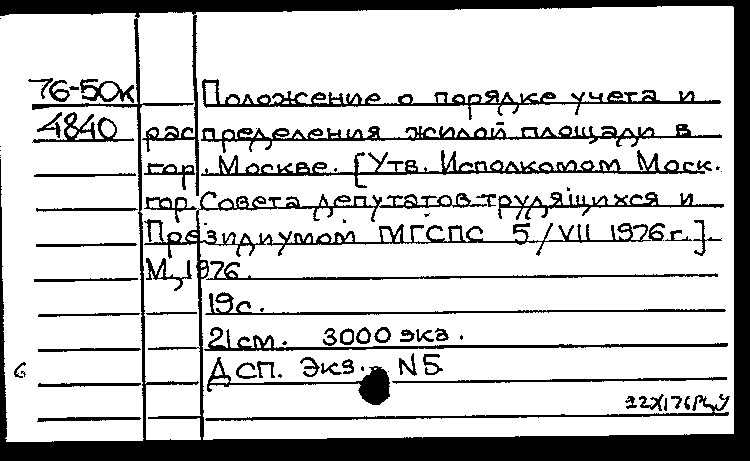 76-50к Положение о порядке учета и
4840 распределения жилой площади в
гор. Москве. [Утв. Исполкомом Моск.
гор. Совета депутатов трудящихся и
Президиумом МГСПС 5/VII 1976 г.].
М., 1976.
19 с.
21 см. 3000 экз.
ДСП. Экз. N5
6